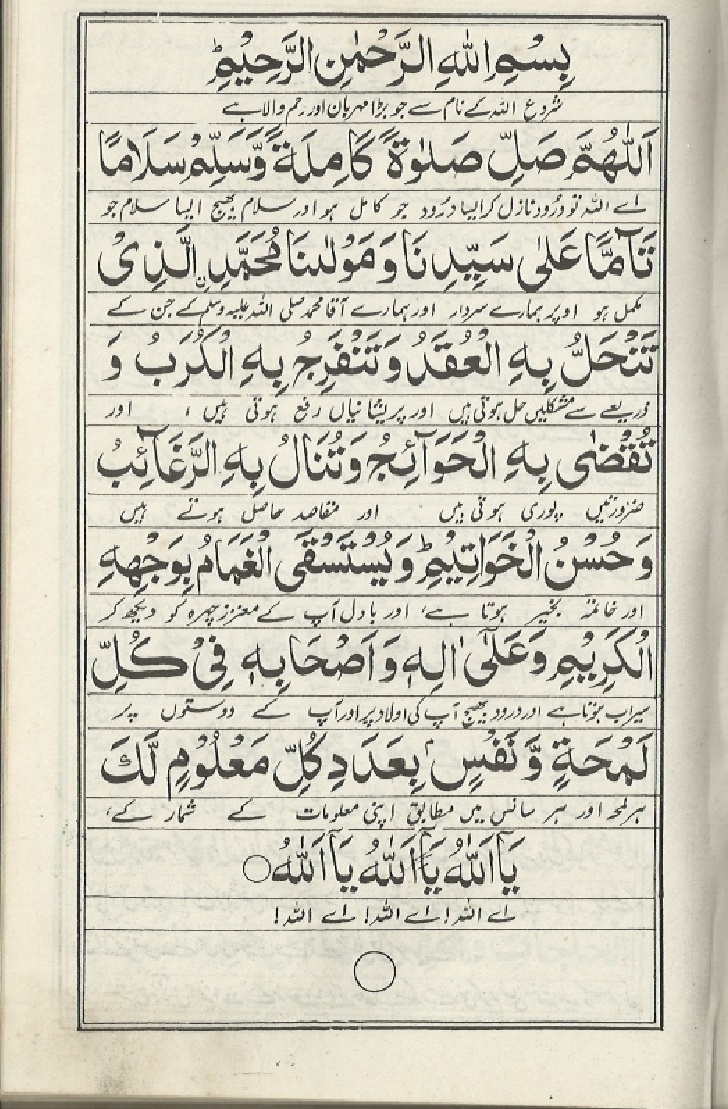 بِسْمِ اللهِ الرَّحْمٰنِ الرَّحِيْمِ
شروع اللہ کے نام سے جو بڑا مہربان اور رحم والا ہے
اَللّٰهُمَّ صَلِّ صَلٰوةً كَامِلَةً وَّسَلِّمْ سَلَامًا
اے اللہ تو درود نازل کر ایسا درود جو کامل ہو اور سلام بھیج ایسا سلام جو
تَآمًّا عَلٰى سَيِّدِنَا وَمَوْلٰىنَا مُحَمَّدِ نِ الَّذِىْ
مکمل ہو اوپر ہمارے سردار اور ہمارے آقا محمد صلی اللہ علیہ وسلم کے جن کے
تَنْحَلُّ بِهِ الْعُقَدُ وَتَنْفَرِجُ بِهِ الْكُرَبُ وَ
ذریعے سے مشکلیں حل ہوتی ہیں اور پریشانیاں رفع ہوتی ہیں ، اور
تُقْضٰى بِهِ الْحَوَآئِجُ وَتُنَالُ بِهِ الرَّغَآئِبُ
ضرورتیں پوری ہوتی ہیں اور مقاصد حاصل ہوتے ہیں
وَحُسْنُ الْخَوَاتِيْمِ وَيُسْتَسْقَى الْغَمَامُ بِوَجْهِهِ
اور خاتمہ بخیر ہوتا ہے، اور بادل آپ کے معزز چہرہ کو دیکھ کر
الْكَرِيْمِ وَعَلٰٓى اٰلِهٖ وَاَصْحَابِهٖ فِىْ كُلِّ
سیراب ہوتا ہے اور درود بھیج آپ کی اولاد پر اور آپ کے دوستوں پر
لَمْحَةٍ وَّنَفَسٍ بِعَدَدِ كُلِّ مَعْلُوْمٍ لَّكَ
ہر لمحہ اور ہر سانس میں مطابق اپنی معلومات کے شمار کے،
يَآ اَللّٰهُ يَآ اَللّٰهُ يَآ اَللّٰهُ
اے اللہ! اے اللہ! اے اللہ!